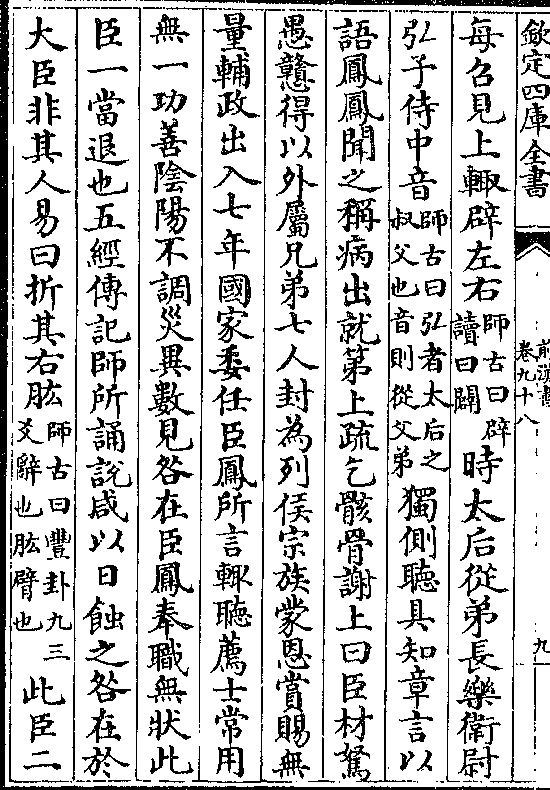 欽定四庫全書
前漢書
卷九十八
九
每召見上輙辟左右師古曰辟讀曰闢時太后從弟長樂衛尉
弘子侍中音師古曰弘者太后之叔父也音則從父弟獨側聽具知章言以
語鳳鳳聞之稱病出就第上疏乞骸骨謝上曰臣材駑
愚戇得以外屬兄弟七人封為列侯宗族蒙恩賞賜無
量輔政出入七年國家委任臣鳳所言輙聽薦士常用
無一功善陰陽不調災異數見咎在臣鳳奉職無狀此
臣一當退也五經傳記師所誦說咸以日蝕之咎在於
大臣非其人易曰折其右肱師古曰豐卦九三爻辭也肱臂也此臣二